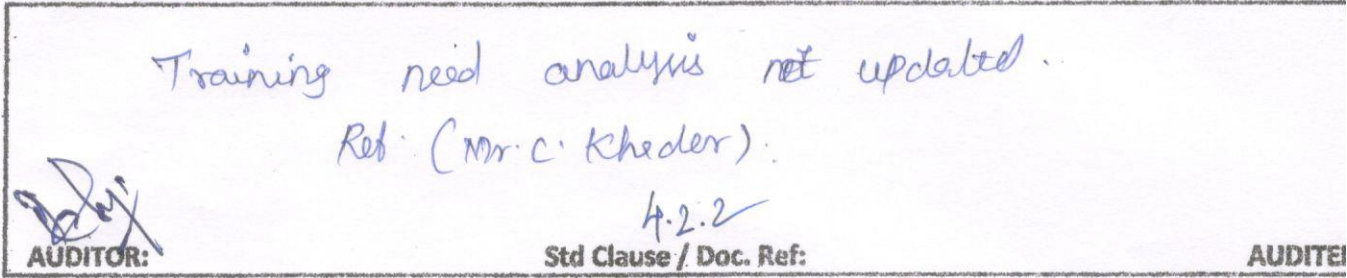 Training need analysis not updated.
Ref: (Mr. C. Kheder).
4.2.2
AUDITOR: Std Clause / Doc. Ref: AUDITEE